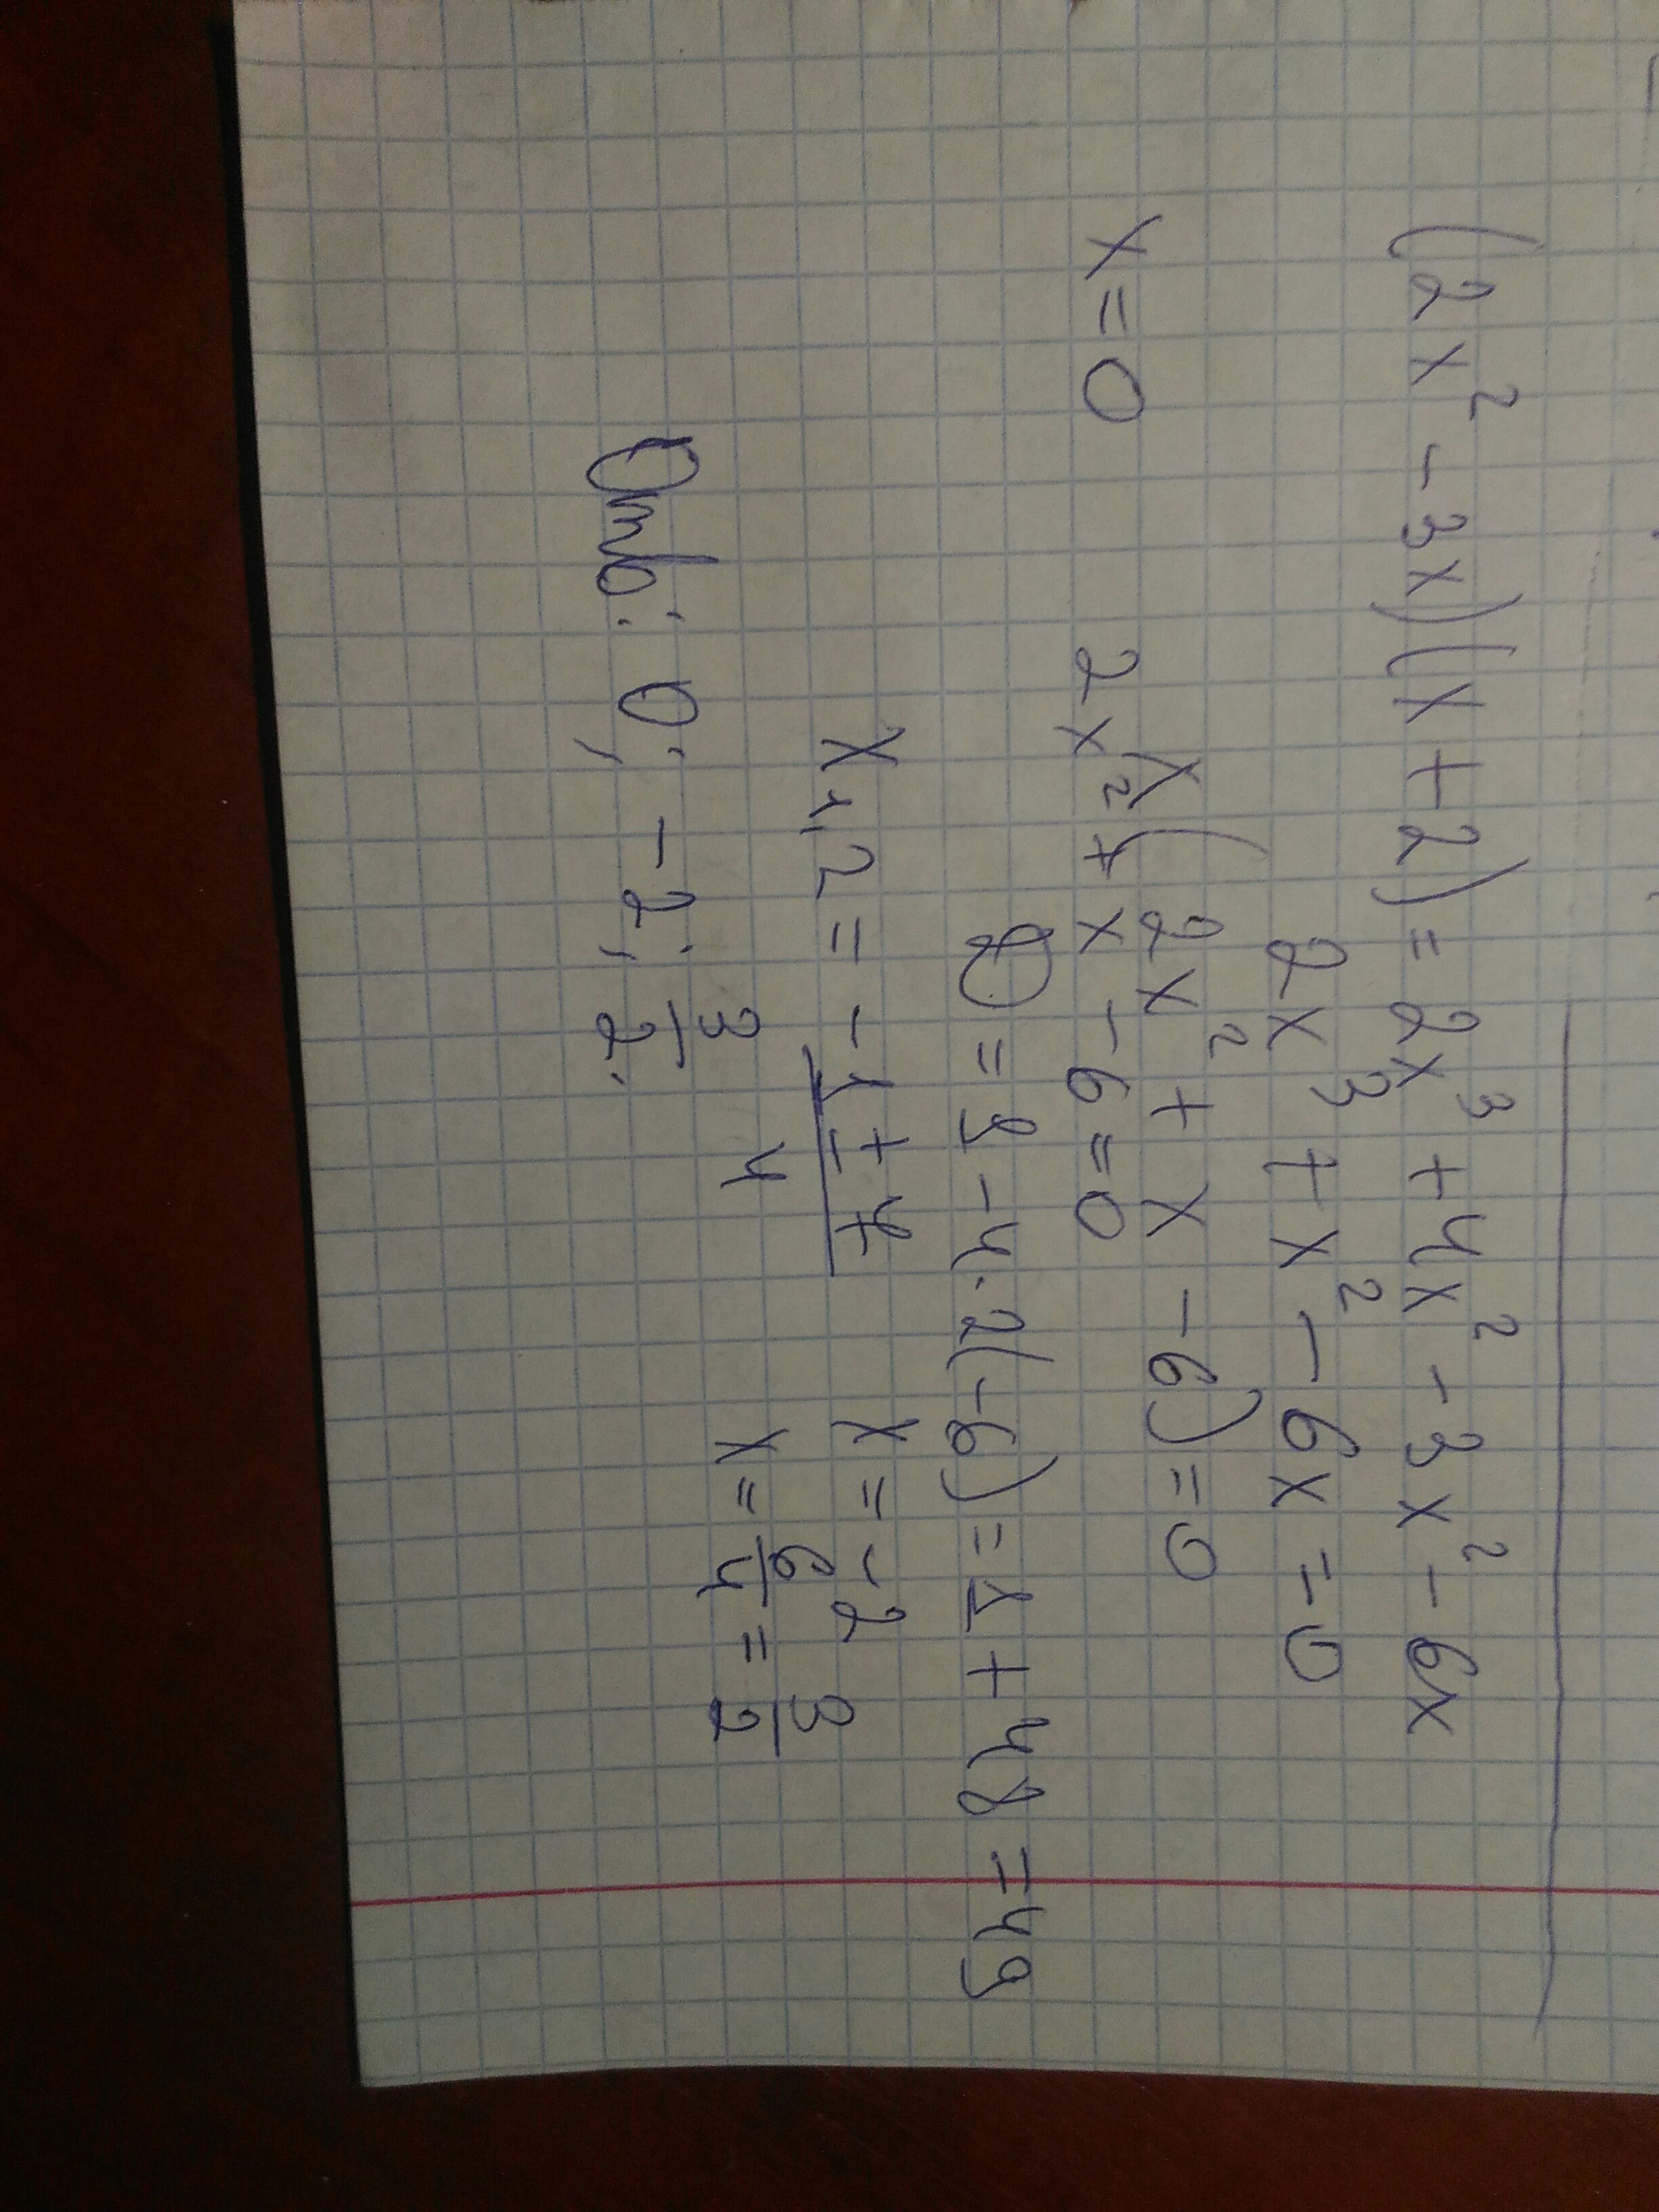 (2x² - 3x)(x + 2) = 2x³ + 4x² - 3x² - 6x
2x³ + x² - 6x = 0
x(2x² + x - 6) = 0
x = 0 2x² + x - 6 = 0
D = 1 - 4 · 2(-6) = 1 + 48 = 49
x₁,₂ = (-1 ± 7)/4 x = -2
x = 6/4 = 3/2
Отв: 0; -2; 3/2.